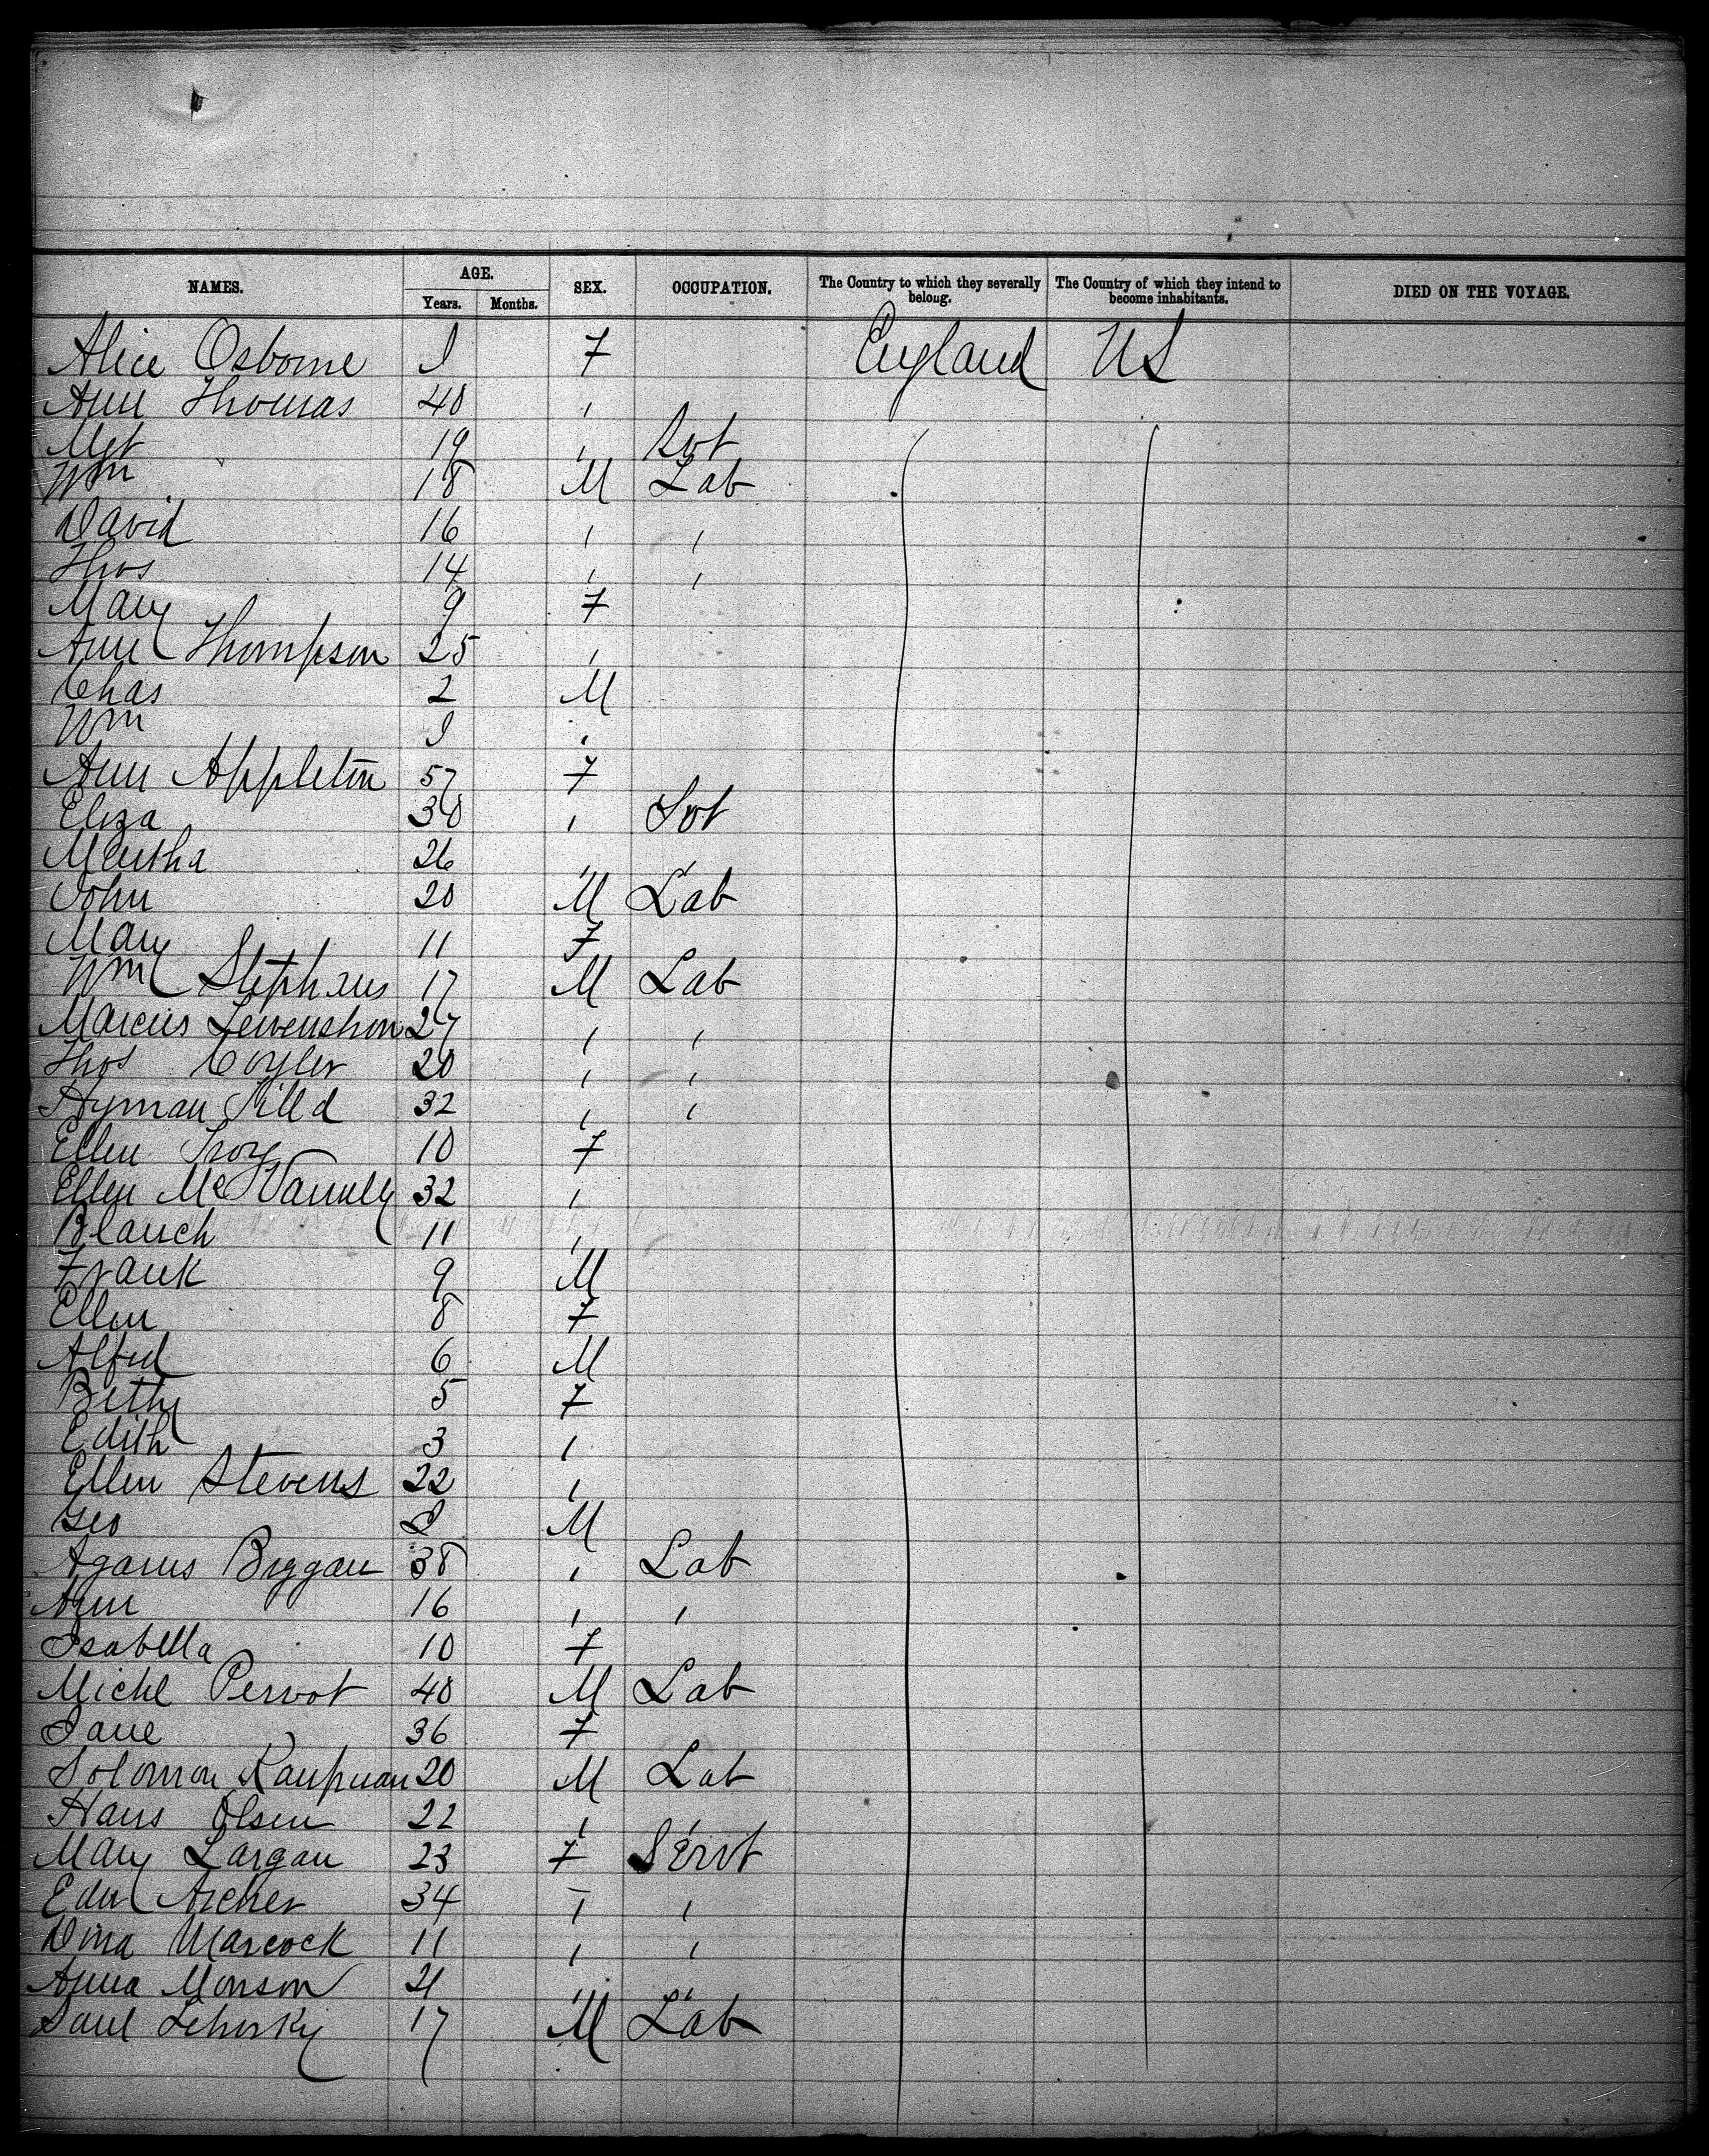 NAMES. AGE. SEX. OCCUPATION. The Country to which they severally belong. The Country of which they intend to become inhabitants. DIED ON THE VOYAGE.
Years. Months.
Alice Osborne I F England US
Ann Thomas 40 "
Mgt 19 " Svt
Wm 18 M Lab
David 16 " "
Thos 14 " "
Mary 9 F
Ann Thompson 25 "
Chas 2 M
Wm I "
Ann Appleton 57 F
Eliza 30 " Svt
Martha 26 " "
John 20 M Lab
Mary 11 F
Wm Stephens 17 M Lab
Marcus 27 " "
Thos Coyler 20 " "
Hyman 32 " "
Ellen Troy 10 F
Ellen 32 "
Blanch 11 "
Frank 9 M
Ellen 8 F
Alfred 6 M
Betty 5 F
Edith 3 "
Ellen Stevens 22 "
Geo I M
38 " Lab
16 " "
Isabella 10 F
Michl Pervot 40 M Lab
Jane 36 F
Solomon Kaufman 20 M Lab
Hans Olsen 22 " "
Mary Largan 23 F Servt
Archer 34 " "
Dina Marcock 11 " "
Anna Monson 21 " "
17 M Lab